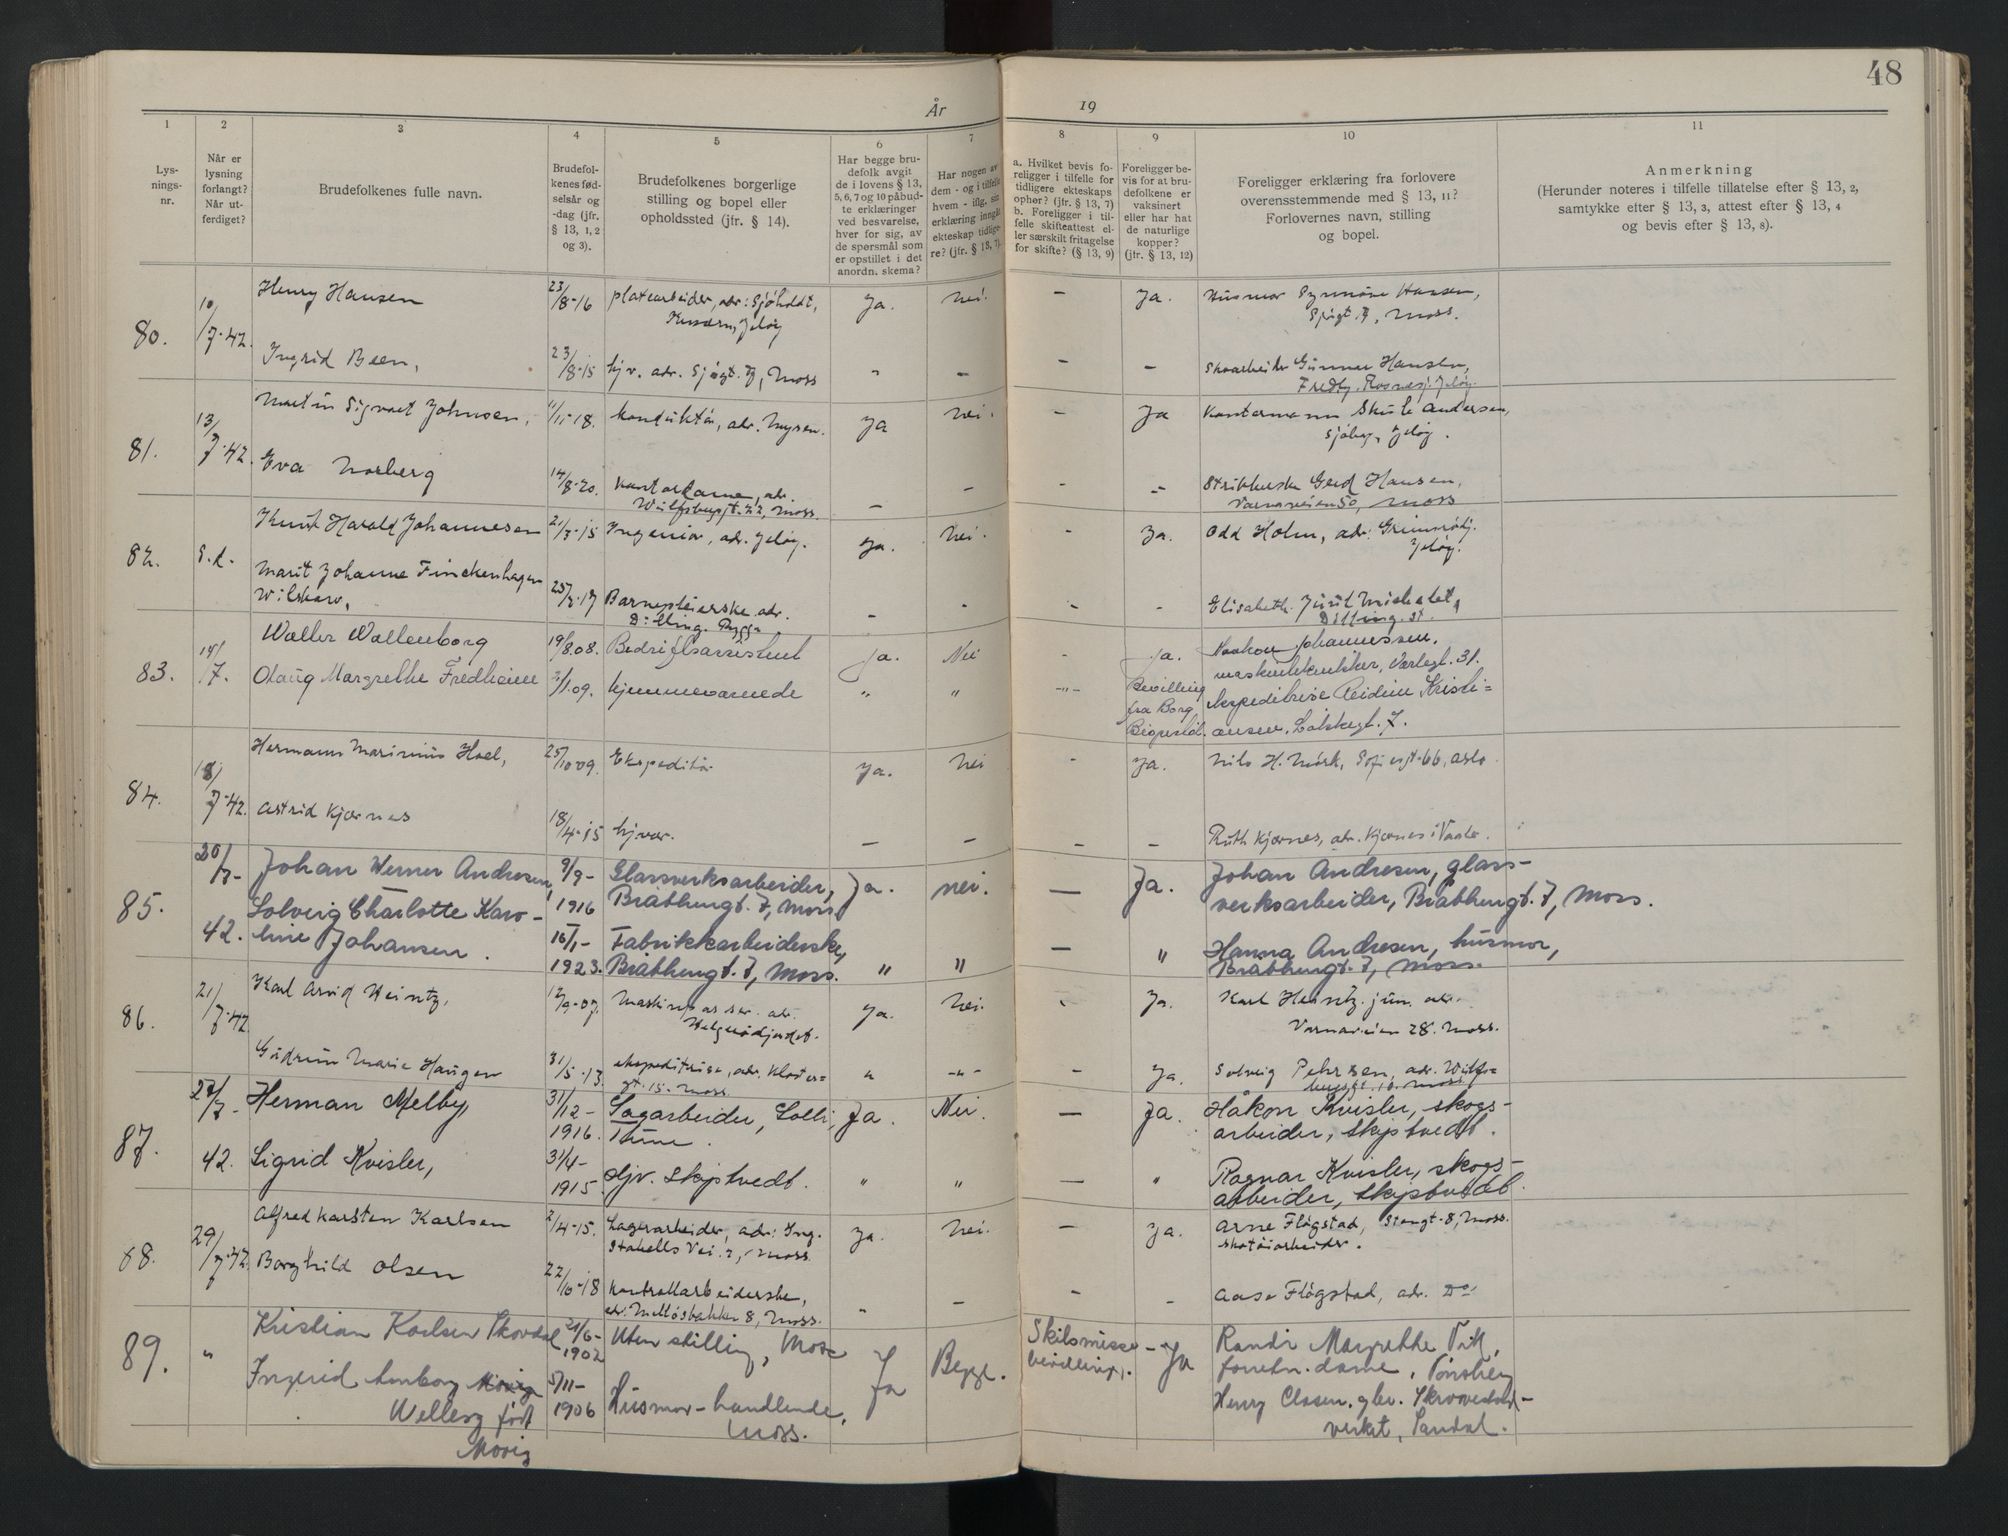 48
År 19
1 2 3 4 5 6 7 8 9 10 11
Lys-
nings-
nr.
Når er
lysning
forlangt?
Når ut-
ferdiget?
Brudefolkenes fulle navn.
Brudefol-
kenes fød-
selsår og
-dag (jfr.
§ 13, 1, 2
og 3).
Brudefolkenes borgerlige
stilling og bopel eller
opholdssted (jfr. § 14).
Har begge bru-
defolk avgit
de i lovens § 13,
5, 6, 7 og 10 påbud-
te erklæringer
ved besvarelse,
hver for sig, av
de spørsmål som
er opstillet i det
anordn. skema?
Har nogen av
dem - og i tilfelle
hvem - iflg. sin
erklæring inngått
ekteskap tidlige-
re? (jfr. § 13, 7).
a. Hvilket bevis fo-
religger i tilfelle for
tidligere ekteskaps
ophør? (jfr. § 13, 7)
b. Foreligger i til-
felle skifteattest el-
ler særskilt fritagelse
for skifte? (§ 13, 9)
Foreligger be-
vis for at bru-
defolkene er
vaksinert
eller har hat
de naturlige
kopper?
(jfr. § 13, 12)
Foreligger erklæring fra forlovere
overensstemmende med § 13, 11?
Forlovernes navn, stilling
og bopel.
Anmerkning
(Herunder noteres i tilfelle tillatelse efter § 13, 2,
samtykke efter § 13, 3, attest efter § 13, 4
og bevis efter § 13, 8).
80. 10/7-42. Henry Hansen 23/8-16 platearbeider, adr: Sjøholdt, Ja. Nei. - Ja. Husmor Synnøve Hansen,
Jeløy Sjøgt. 7, Moss.
Ingrid Been, 23/8-15 hjv. adr. Sjøgt. 7, Moss " - - - Skoarbeider Gunnar Hansen,
Fredly, Jeløy.
81. 13/7-42. Martin Sigvart Johnsen, 11/11-18. konduktør, adr. Mysen. Ja Nei. - Ja Kontormann Skule Andersen,
Jeløy.
Eva Norberg 14/8-20. Kontordame, adr.
Wulfsbergsgt. 22, Moss. - - - - Gerd Hansen,
Varnaveien 50, Moss
82. S.d. Knut Harald Johannesen 21/3-15 Ingeniør, adr. Jeløy. Ja. Nei. - Ja. Odd Holm, adr:
Jeløy.
Marit Johanne Finckenhagen
25/3-17 Barnepleierske adr.
Dilling. Rygge - - - - Elisabeth Juul Michelet,
Dilling. st.
83. 14/7. Walter Wallenborg 19/8.08. Bedriftsassistent Ja. Nei - Ja. Haakon Johannessen.
maskintekniker, Varlegt. 31.
Olaug Margrethe Fredheim 2/1.09. hjemmeværende " " -"- Bevilling Ekspeditrise Reidun Kristi=
fra Borg
Bispestol. ansen, Lotskegt. 7.
84. 18/7-42. Hermann Marinius Hoel, 25/10 09. Ekspeditør Ja. Nei - Ja. Nils H. Mørk, Sofiesgt. 66, Oslo
Astrid Kjærnes 18/4-15 hjvær. - - - - Ruth Kjærnes, adr. Kjærnes i Vaaler.
85. 20/7- Johan Werner Andresen, 9/9- Glassverksarbeider, Ja. Nei. - Ja. Johan Andresen, glass-
1916 Bråthengt. 7, Moss verksarbeider, Bråthengt. 7, Moss.
42. Solveig Charlotte Karo-
line Johansen. 16/1- Fabrikkarbeiderske, - " Hanna Andresen, husmor,
1923. Bråthengt. 7, Moss. " " Bråthengt. 7, Moss.
86. 21/7-42 Karl Arvid Heintz, 12/9-07. Maskinpasser. adr. Ja. Nei. - Ja. Karl Heintz. jun. adr.
Varnaveien 28. Moss.
Gudrun Marie Haugen 31/5-13. ekspeditrise, adr. Kloster= " -"- - Ja. Solveig Pehrsen, adr. Wulfs=
gt. 15. Moss bergsgt. 10. Moss
87. 27/7- Herman Melby, 31/12- Sagarbeider, Solli, Ja. Nei. - Ja. Håkon Kvisler, skogs-
1916. Tune. arbeider, Skiptvedt.
42. Sigrid Kvisler, 31/4- Hjv. Skiptvedt. " " - " Ragnar Kvisler, skogs-
1915. arbeider, Skiptvedt.
88. 29/7-42. Alfred Karsten Karlsen 2/4-15. Lagerarbeider, adr: Ing. Ja. Nei. - Ja. Arne Fløgstad, Storgt. 8, Moss.
Vei. 2, Moss. skotøiarbeider.
Borghild Olsen 22/10-18 Kontrollarbeiderske,
adr: Melløsbakken 8, Moss. " - - - Aase Fløgstad, adr. Do
89. " Kristian Karlsen Skovdal 21/6-
1902 Uten stilling, Moss Ja Begge. Skilsmisse-
bevilling. Ja Randi Margrethe Vik,
forretn. dame, Tønsberg
Ingerid Amborg
Welleng født
Movig 5/11-
1906 Husmor-handlende,
Moss. Henry Clasen.
verket, Sandal.